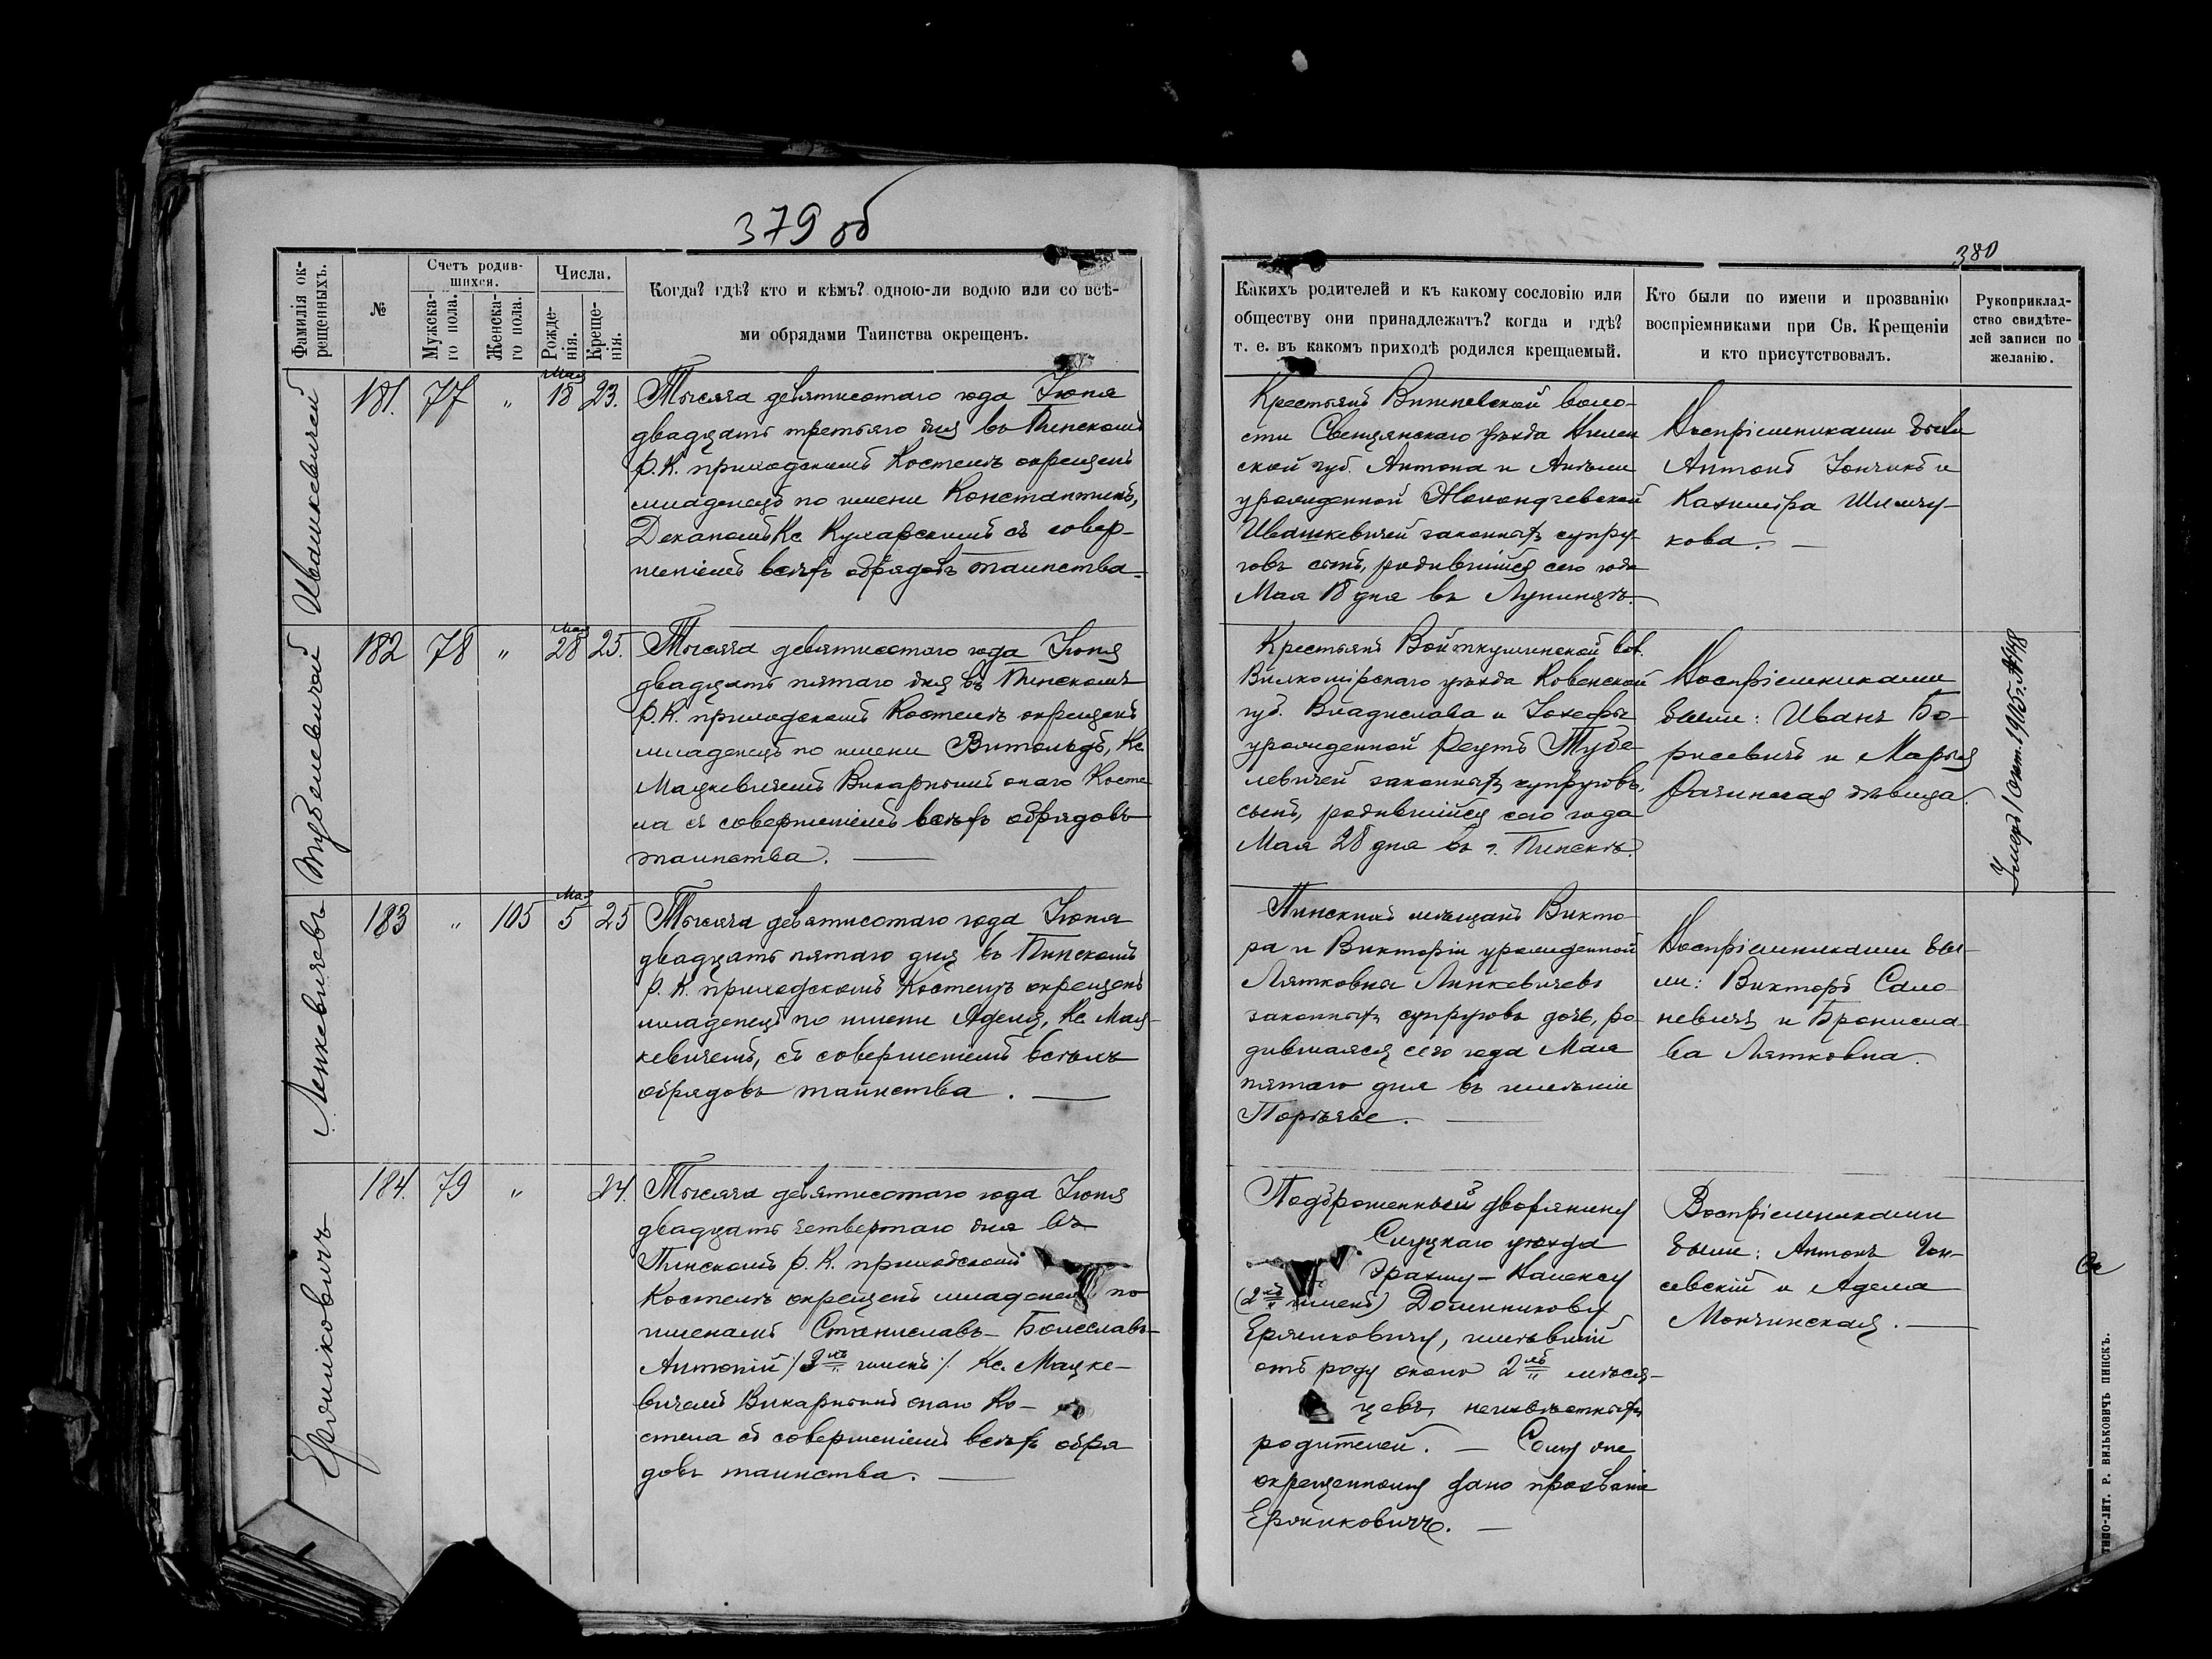 379 об
380
Фамилія ок-
рещенныхъ.
№
Счетъ родив-
шихся.
Мужска-
го пола.
Женска-
го пола.
Числа.
Рожде-
нія.
Креще-
нія.
Когда? гдѣ? кто и кѣмъ? одною-ли водою или со всѣ-
ми обрядами Таинства окрещенъ.
Какихъ родителей и къ какому сословію или
обществу они принадлежатъ? когда и гдѣ?
т. е. въ какомъ приходѣ родился крещаемый.
Кто были по имени и прозванію
воспріемниками при Св. Крещеніи
и кто присутствовалъ.
Рукоприклад-
ство свидѣте-
лей записи по
желанію.
Ивашкевичей
181. 77 " Мая 18 23.
Тысяча девятисотаго года Іюня
двадцать третьяго дня въ Пинскомъ
Р. К. приходскомъ Костелѣ окрещенъ
младенецъ по имени Константинъ,
Деканомъ Кс. Кухарскимъ съ совер-
шеніемъ всѣхъ обрядовъ таинства.
Крестьянъ Вишневской воло-
сти Свенцянскаго уѣзда Вилен
ской губ. Антона и Анѣли
урожденной
Ивашкевичей законныхъ супру-
говъ сынъ, родившійся сего года
Мая 18 дня въ Лунинцѣ.
Воспріемниками были
Антонъ Іончикъ и
Казиміра Шимчу-
кова. —
Тубелевичей
182 78 " Мая 28 25.
Тысяча девятисотаго года Іюня
двадцать пятаго дня въ Пинскомъ
Р. К. приходскомъ Костелѣ окрещенъ
младенецъ по имени Витольдъ, Кс.
Мацкевичемъ Викарнымъ онаго Косте
ла съ совершеніемъ всѣхъ обрядовъ
таинства. —
Крестьянъ Войткушинской вол.
Вилкомірскаго уѣзда Ковенской
губ. Владислава и Іозефы
урожденной Реутъ Тубе-
левичей законныхъ супруговъ
сынъ, родившійся сего года
Мая 28 дня въ г. Пинскѣ.
Воспріемниками
были: Иванъ Бо-
рисевичъ и Марья
Рачинская дѣвица.
Умеръ 1 Окт. 1905 г. № 148
Ленкевичевъ
183 " 105 Мая 5 25
Тысяча девятисотаго года Іюня
двадцать пятаго дня въ Пинскомъ
Р. К. приходскомъ Костелѣ окрещенъ
младенецъ по имени Аделя, Кс. Мац-
кевичемъ, съ совершеніемъ всѣхъ
обрядовъ таинства. —
Пинскихъ мѣщанъ Викто-
ра и Викторіи урожденной
Лятковна Линкевичевъ
законныхъ супруговъ дочь, ро-
дившаяся сего года Мая
пятаго дня въ имѣніи
Порѣчье. —
Воспріемниками бы-
ли: Викторъ Сало-
невичъ и Бронисла-
ва Лятковна.
Ермиковичъ
184. 79 " 24.
Тысяча девятисотаго года Іюня
двадцать четвертаго дня въ
Пинскомъ Р. К. приходскомъ
Костелѣ окрещенъ младенецъ по
именамъ Станиславъ-Болеславъ-
Антоній /3хъ именъ/ Кс. Мацке-
вичемъ Викарнымъ онаго Ко-
стела съ совершеніемъ всѣхъ обря
довъ таинства. —
Подброшенный дворянину
Слуцкаго уѣзда
(2хъ именъ) Доминикову
Ермиковичу, имѣвшій
отъ роду около 2хъ мѣся-
цевъ, неизвѣстныхъ
родителей. — Сему же
окрещенному дано прозваніе
Ермиковичъ. —
Воспріемниками
были: Антонъ Гон-
севскій и Адела
Мончинская. —
ТИПО-ЛИТ. Р. ВИЛЬКОВИЧЪ ПИНСКЪ.